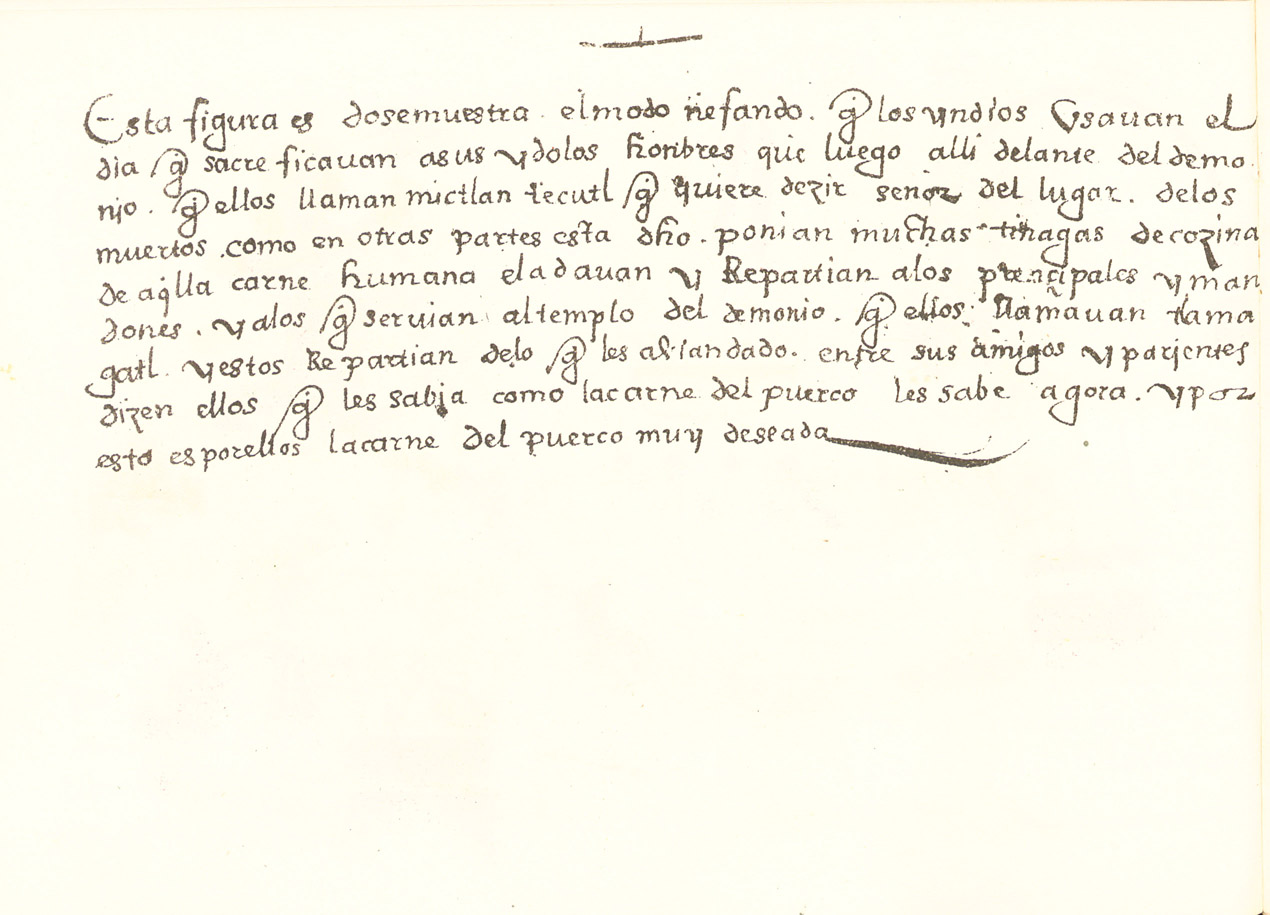 Esta figura es dosemuestra . elmodo nefando . q̃ los yndios Vsauan el
dia q̃ sacre ficauan asus ydolos honbres que luego alli delante del demo
nio . q̃ ellos llaman mictlan tecutl q̃ quiere dezir señor del lugar . delos
muertos . como en otras partes esta dho . ponian muchas tinagas de cozina
de aq̃lla carne humana eladauan y Repartian alos prencipales y man
dones . y alos q̃ seruian al templo del demonio . q̃ ellos llamauan tlama
gatl yestos Repartian delo q̃ les dado . entre sus amigos y parientes
dizen ellos q̃ les sabia como lacarne del puerco les sabe agora . ypor
esto es porellos lacarne del puerco muy deseada